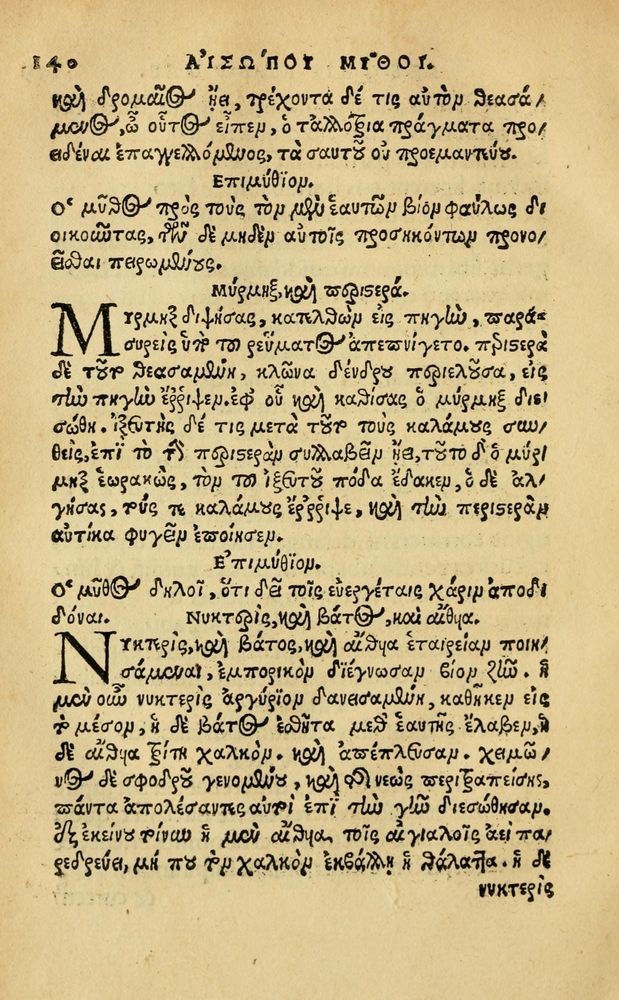 140 ΑἸΣΏΠΟΥ ΜΥ͂ΘΟΙ.
καὶ δρομαῖος ᾔει, τρέχοντα δέ τις αὐτὸν θεασά/
μενος, ὦ οὗτος εἶπεν, ὁ τἀλλότρια πράγματα προ/
ειδέναι ἐπαγγελλόμενος, τὰ σαυτοῦ οὐ προεμαντεύου.
Ἐπιμύθιον.
Ὁ μῦθος πρὸς τοὺς τὸν μὲν ἑαυτῶν βίον φαύλως δι
οικοῦντας, τῶν δὲ μηδὲν αὐτοῖς προσηκόντων προνο/
εῖσθαι πειρωμένους.
Μύρμηξ, καὶ περιστερά.
Μύρμηξ διψήσας, κατελθὼν εἰς πηγὴν, παρα/
συρεὶς ὑπὸ τοῦ ῥεύματος ἀπεπνίγετο. περιστερὰ
δὲ τοῦτο θεασαμένη, κλῶνα δένδρου περιελοῦσα, εἰς
τὴν πηγὴν ἔρριψεν. ἐφ' οὗ καὶ καθίσας ὁ μύρμηξ διε
σώθη. ἰξευτὴς δέ τις μετὰ τοῦτο τοὺς καλάμους συν/
θεὶς, ἐπὶ τὸ τὴν περιστερὰν συλλαβεῖν ᾔει, τοῦτο δ' ὁ μύρ/
μηξ ἑωρακὼς, τὸν τοῦ ἰξευτοῦ πόδα ἔδακεν, ὁ δὲ ἀλ/
γήσας, τούς τε καλάμους ἔρριψε, καὶ τὴν περιστερὰν
αὐτίκα φυγεῖν ἐποίησεν.
Ἐπιμύθιον.
Ὁ μῦθος δηλοῖ, ὅτι δεῖ τοῖς εὐεργέταις χάριν ἀποδι
δόναι. Νυκτερὶς, καὶ βάτος, καὶ αἴθυα.
Νυκτερὶς, καὶ βάτος, καὶ αἴθυα ἑταιρείαν ποιη/
σάμεναι, ἐμπορικὸν διέγνωσαν βίον ζῆν. ἡ
μὲν οὖν νυκτερὶς ἀργύριον δανεισαμένη, καθῆκεν εἰς
τὸ μέσον, ἡ δὲ βάτος ἐσθῆτα μεθ' ἑαυτῆς ἔλαβεν, ἡ
δὲ αἴθυα τρίτη χαλκὸν. καὶ ἀπέπλευσαν. χειμῶ/
νος δὲ σφοδροῦ γενομένου, καὶ τῆς νεὼς περιτραπείσης,
πάντα ἀπολέσαντες αὐτοὶ ἐπὶ τὴν γῆν διεσώθησαν.
ἐξ ἐκείνου τοίνυν ἡ μὲν αἴθυα, τοῖς αἰγιαλοῖς ἀεὶ πα/
ρεδρεύει, μή που τὸν χαλκὸν ἐκβάλλῃ ἡ θάλαττα. ἡ δὲ
νυκτερὶς